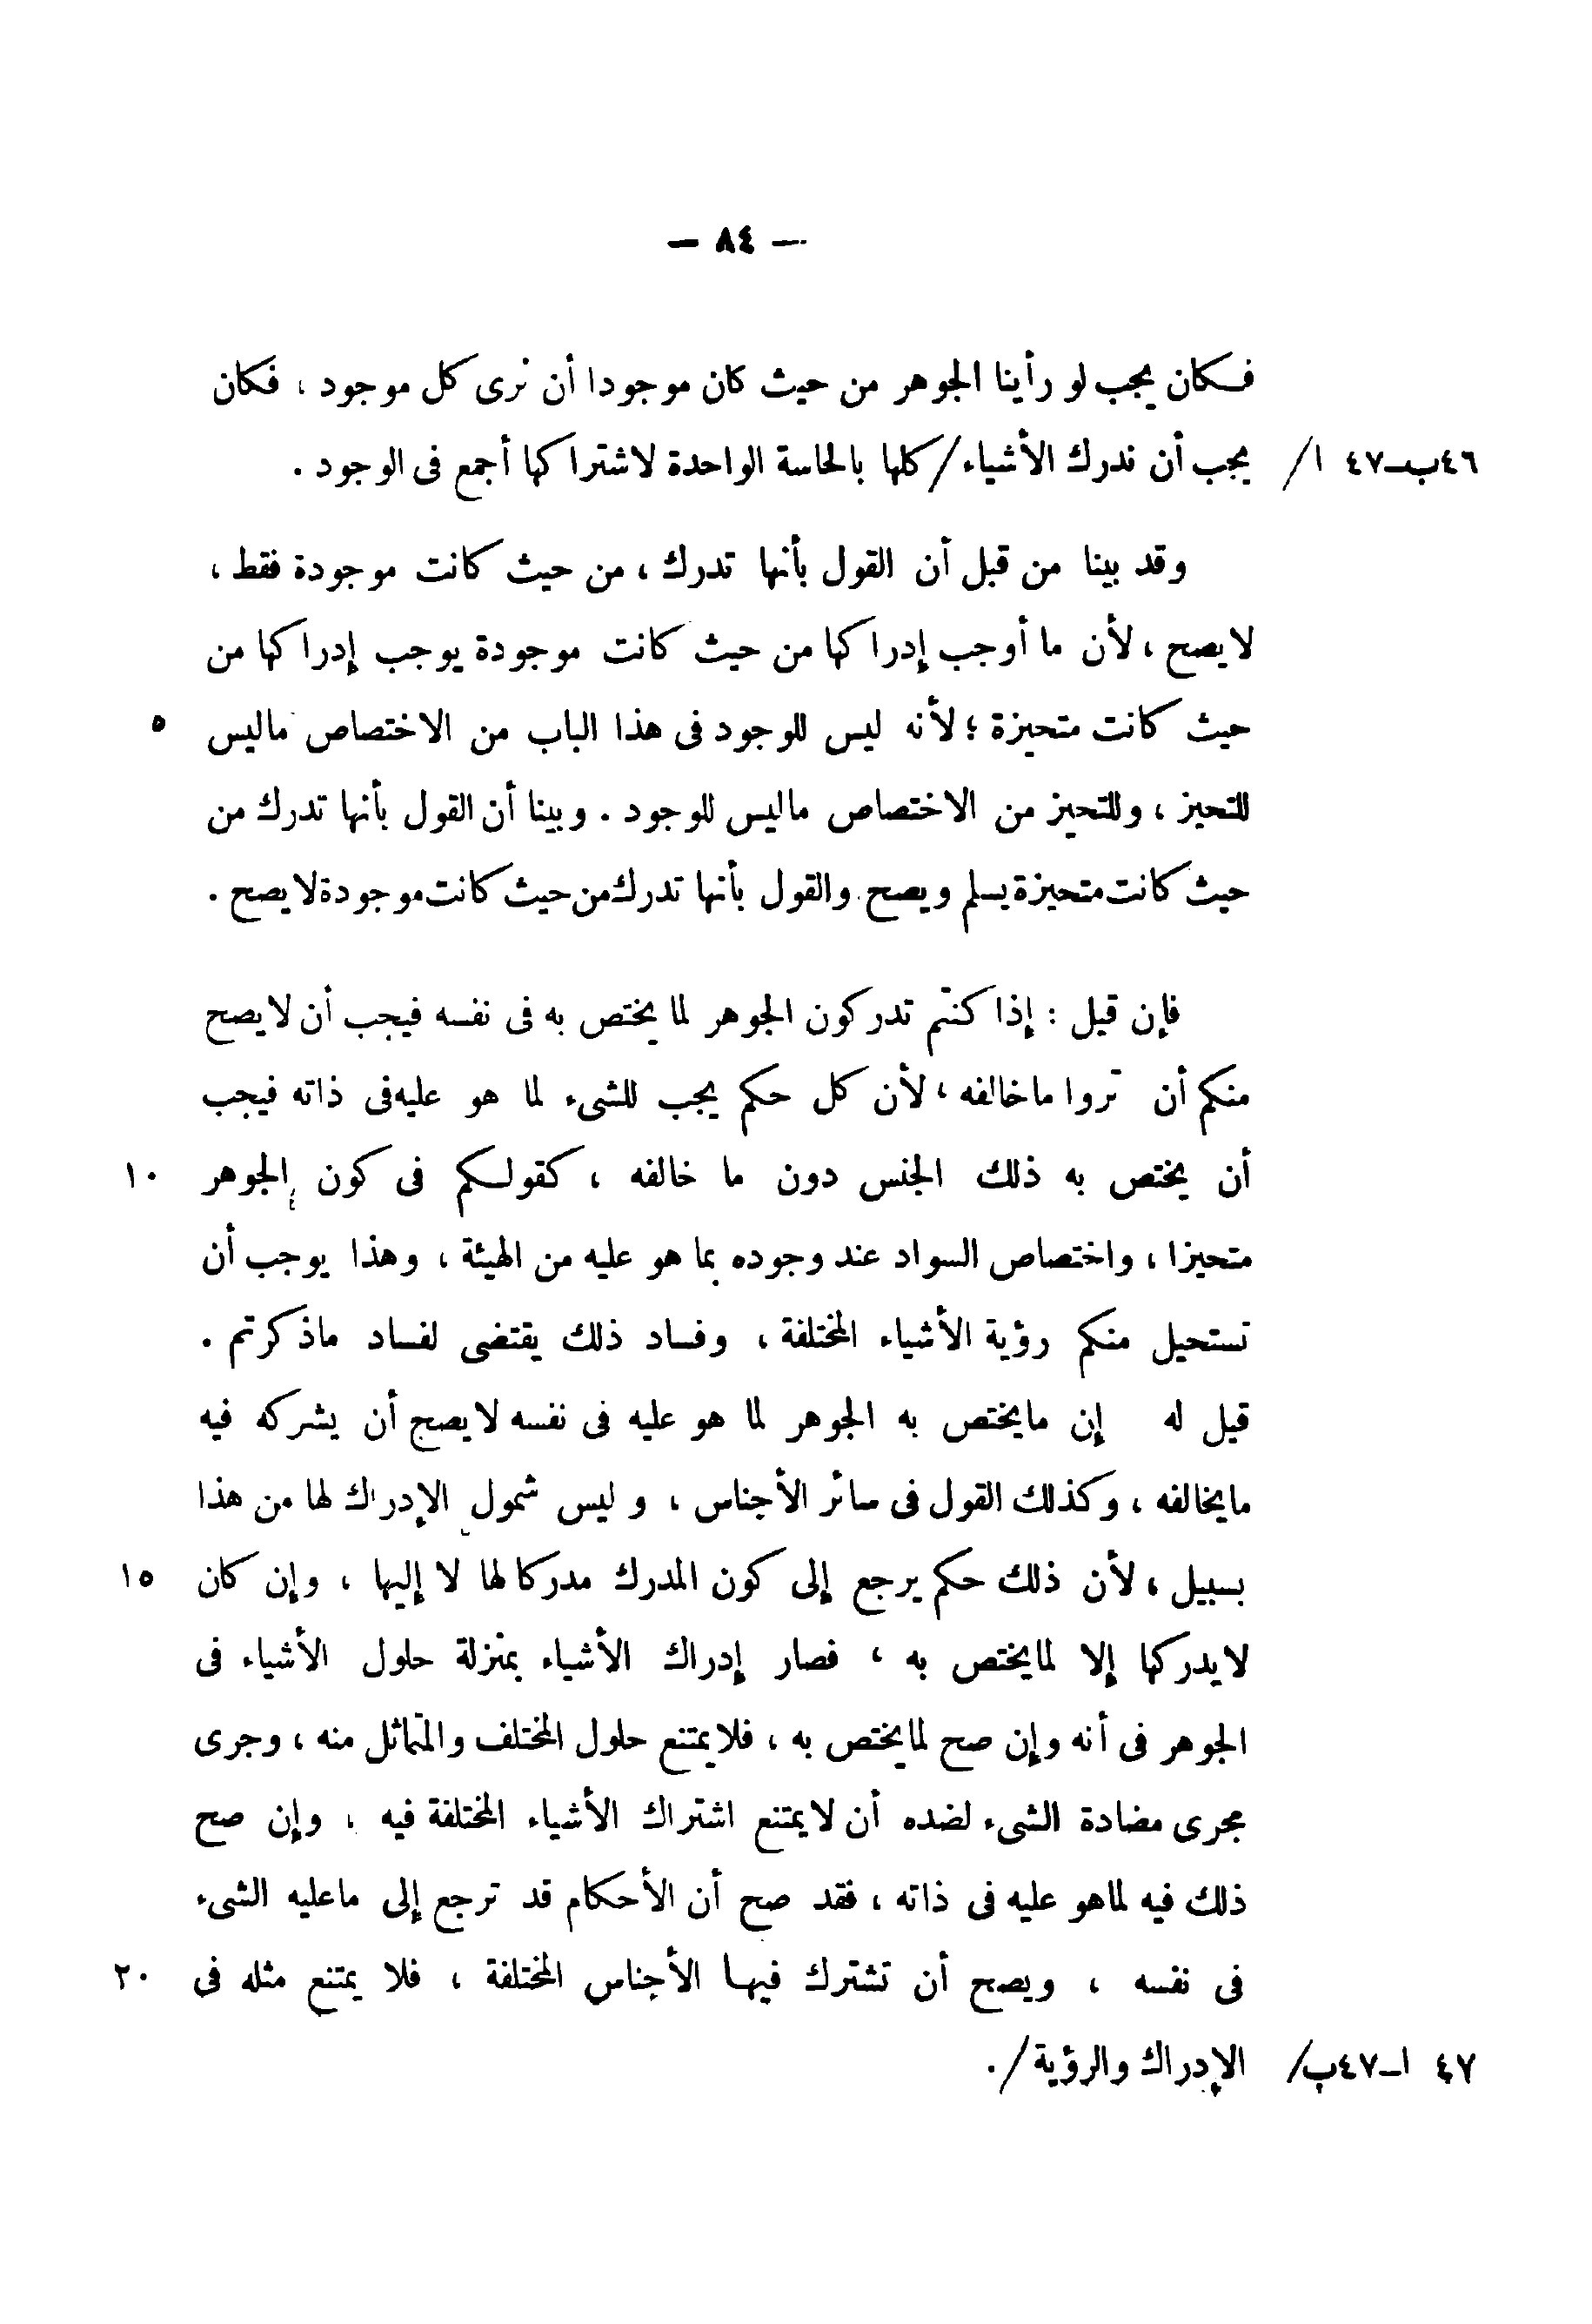 — ٨٤ —
فكان يجب لو رأينا الجوهر من حيث كان موجودا أن نرى كل موجود ، فكان
٤٦ب-٤٧ ا/ يجب أن ندرك الأشياء/كلها بالحاسة الواحدة لاشتراكها أجمع فى الوجود .
وقد بينا من قبل أن القول بأنها تدرك ، من حيث كانت موجودة فقط ،
لايصح ، لأن ما أوجب إدراكها من حيث كانت موجودة يوجب إدراكها من
حيث كانت متحيزة ؛ لأنه ليس للوجود فى هذا الباب من الاختصاص ماليس ٥
للتحيز ، وللتحيز من الاختصاص ماليس للوجود . وبينا أن القول بأنها تدرك من
حيث كانت متحيزة يسلم ويصح والقول بأنها تدرك من حيث كانت موجودة لايصح .
فإن قيل : إذا كنتم تدركون الجوهر لما يختص به فى نفسه فيجب أن لايصح
منكم أن تروا ماخالفه ، لأن كل حكم يجب للشىء لما هو عليه فى ذاته فيجب
أن يختص به ذلك الجنس دون ما خالفه ، كقولكم فى كون الجوهر ١٠
متحيزا ، واختصاص السواد عند وجوده بما هو عليه من الهيئة ، وهذا يوجب أن
تستحيل منكم رؤية الأشياء المختلفة ، وفساد ذلك يقتضى لفساد ماذكرتم .
قيل له إن مايختص به الجوهر لما هو عليه فى نفسه لايصح أن يشركه فيه
مايخالفه ، وكذلك القول فى سائر الأجناس ، وليس شمول الإدراك لها من هذا
بسبيل ، لأن ذلك حكم يرجع إلى كون المدرك مدركا لها لا إليها ، وإن كان ١٥
لايدركها إلا لمايختص به ، فصار إدراك الأشياء بمنزلة حلول الأشياء فى
الجوهر فى أنه وإن صح لمايختص به ، فلايمتنع حلول المختلف والمتماثل منه ، وجرى
مجرى مضادة الشىء لضده أن لايمتنع اشتراك الأشياء المختلفة فيه ، وإن صح
ذلك فيه لماهو عليه فى ذاته ، فقد صح أن الأحكام قد ترجع إلى ماعليه الشىء
فى نفسه ، ويصح أن تشترك فيها الأجناس المختلفة ، فلا يمتنع مثله فى ٢٠
٤٧ ا-٤٧ب/ الإدراك والرؤية/ .